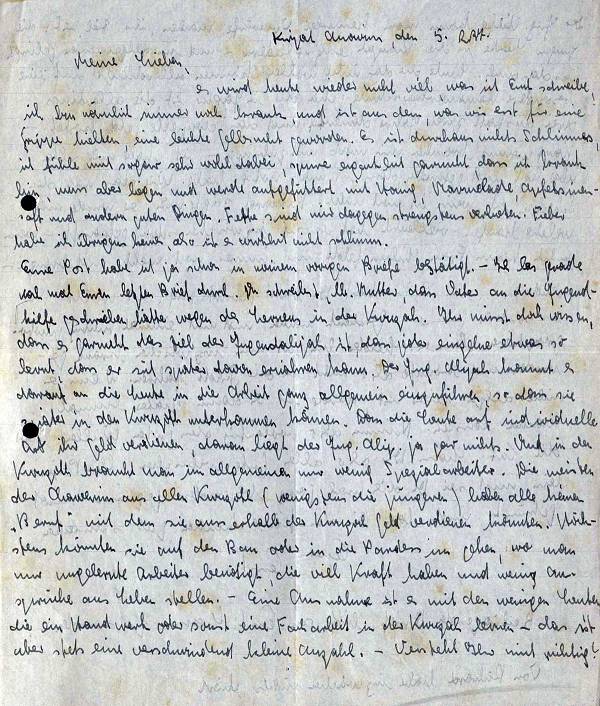 Kirjat Anawim, den 5.
Meine Lieben,
es wird heute wieder nicht viel, was ich Euch schreibe,
ich bin nämlich immer noch krank und ist aus dem, was wir erst für eine
Grippe hielten, eine leichte Gelbsucht geworden. Es ist durchaus nichts Schlimmes,
ich fühle mich sogar sehr wohl dabei, spüre eigentlich garnicht dass ich krank
bin, muss aber liegen und werde aufgefüttert mit Honig, Marmelade, Apfelsinen-
saft und andern guten Dingen. Fette sind mir dagegen strengstens verboten. Fieber
habe ich übrigens keines, also ist es wirklich nicht schlimm.
Eure Post habe ich ja schon in meinem vorigen Briefe bestätigt. – Ich las gerade
noch mal Euren letzten Brief durch. Du schreibst, lb. Mutter, dass Vater an die Jugend-
hilfe geschrieben hätte wegen des Lernens in der Kwuzah. Ihr müsst doch wissen,
dass es garnicht das Ziel der Jugendalijah ist, dass jeder einzelne etwas so
lernt, dass er sich später davon ernähren kann. Der Jug. Alijah kommt es
darauf an die Leute in die Arbeit ganz allgemein einzuführen, so dass sie
später in den Kwuzoth unterkommen können. Dass die Leute auf individuelle
Art ihr Geld verdienen, daran liegt der Jug. Alij. ja gar nichts. Und in den
Kwuzoth braucht man im allgemeinen nur wenig Spezialarbeiter. Die meisten
der Chawerim aus allen Kwuzoth (wenigstens die jüngeren) haben alle keinen
"Beruf" mit dem sie ausserhalb der Kwuzah Geld verdienen könnten. Höch-
stens könnten sie auf den Bau oder in die Pardessim gehen, wo man
nur ungelernte Arbeiter benötigt, die viel Kraft haben und wenig An-
sprüche ans Leben stellen. – Eine Ausnahme ist es mit den wenigen Leuten
die ein Handwerk oder sonst eine Facharbeit in der Kwuzah lernen – das ist
aber stets eine verschwindend kleine Anzahl. – Versteht Ihr mich richtig?